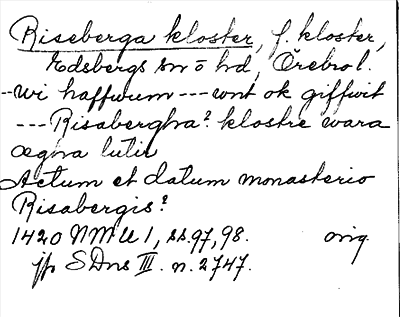 Riseberga kloster, f. kloster,
Edsbergs sn o hd, Örebro l.
--wi haffwum --- wnt ok giffwit
--- Risabergha? klostre wara
æghra lutir
Actum et datum monasterio
Risabergis?
1420 NMU 1, ss. 97, 98. orig.
jfr SDns III. n. 2747.